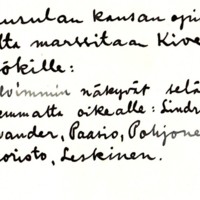 urulan kansan opi
lta marssitaan Kive
ökille:
lvimmin näkyvät selä
emmalta oikealle: Lindr
vander, Paasio, Pohjone
oristo, Leskinen.